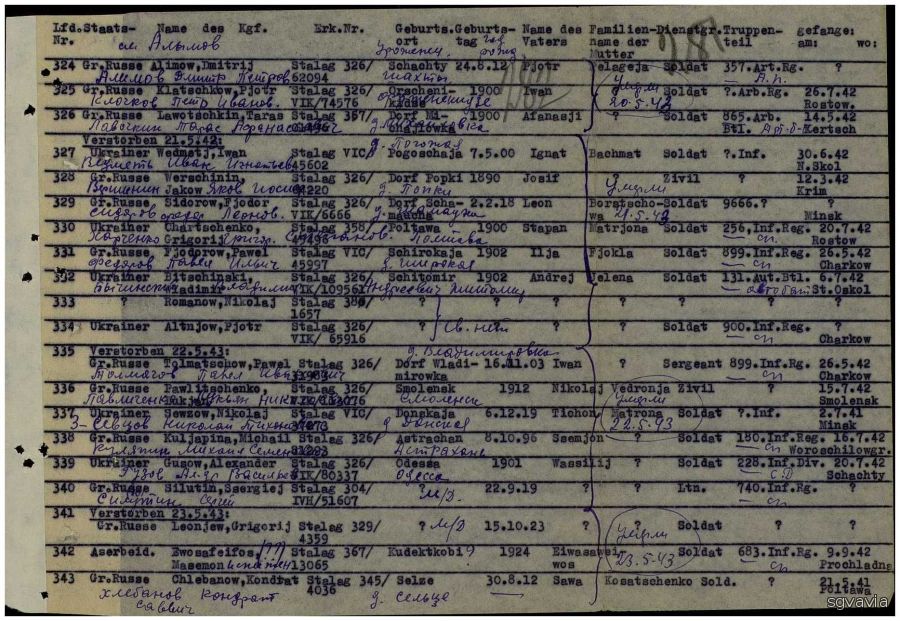 Lfd.Staats- Name des Kgf. Erk.Nr. Geburts.Geburts- Name des Familien-Dienstgr.Truppen- gefange:
Nr. ort tag Vaters name der teil am: wo:
Mutter
см Алымов
324 Gr.Russe Alimow,Dmitrij Stalag 326/ Schachty 24.8.12 Pjotr Pelageja Soldat 357.Art.Rg. ?
62094 шахты
325 Gr.Russe Klatschkow,Pjotr Stalag 326/ Orscheni- 1900 Iwan ? Soldat ?.Arb.Rg. 26.7.42
Клочков Петр Иванов. VIK/74576 Rostow.
умерли
20.5.43
326 Gr.Russe Lawotschkin,Taras Stalag 326/ Dorf Mi- 1900 Afanasji ? Soldat 865.Art. 14.5.42
Лавочкин Тарас Btl. Kertsch
Verstorben 21.5.42:
327 Ukrainer Wedmetj,Iwan Stalag VIC/ Pogoschaja 7.5.00 Ignat Bachmat Soldat ?.Inf. 30.6.42
45602 N.Skol
328 Gr.Russe Werschinin, Stalag 326/ Dorf Popki 1890 Josif ? Zivil ? 12.3.42
Вершинин Jakow Яков д. Попки умерли Krim
329 Gr.Russe Sidorow,Fjodor Stalag 326/ Dorf Scha- 2.2.18 Leon Boratscho-Soldat 9666.? ?
Сидоров Леонов. VIK/6666 wa Minsk
330 Ukrainer Chartschenko, Stalag 358/ Poltawa 1900 Stapan Matrjona Soldat 256,Inf.Reg. 20.7.42
Харченко Grigorij Rostow
331 Gr.Russe Fjodorow,Pawel Stalag VIC/ Schirokaja 1902 Ilja Fjokla Soldat 899.Inf.Rg. 26.5.42
Федоров Павел Ильич 45997 д. Широкая Charkow
332 Ukrainer Bitschinski, Stalag 326/ Schitomir 1902 Andrej Jelena Soldat 131.Aut.Btl. 6.7.42
Wladimir VIK/109561 Андреевич автобат St.Oskol
333 ? Romanow,Nikolaj Stalag 380/ ? ? ? ? ? ? ?
1657
334 Ukrainer Altnjow,Pjotr Stalag 326/ ? ? ? ? Soldat 900.Inf.Reg. ?
VIK/ 65916 св. нет Charkow
335 Verstorben 22.5.43: д. Владимировка
Gr.Russe Tolmatschow,Pawel Stalag 326/ Dorf Wladi- 16.11.03 Iwan ? Sergeant 899.Inf.Rg. 26.5.42
Толмачов Павел mirowka Charkow
336 Gr.Russe Pawlitschenko, Stalag 326/ Smolensk 1912 Nikolaj Vedronja Zivil 15.7.42
Павличенко Смоленск умерли Smolensk
337 Ukrainer Sewzow,Nikolaj Stalag VIC/ Donskaja 6.12.19 Tichon Matrona Soldat ?.Inf. 2.7.41
Севцов Николай д Донская 22.5.43 Minsk
338 Gr.Russe Kuljapina,Michail Stalag 326/ Astrachan 8.10.96 Ssemjon ? Soldat 180.Inf.Reg. 16.7.42
Кулятин Михаил Семен Астрахань Woroschilowgr.
339 Ukrainer Gusow,Alexander Stalag 326/ Odessa 1901 Wassilij ? Soldat 228.Inf.Div. 20.7.42
Гузов VIK/80337 Одесса Schachty
340 Gr.Russe Silutin,Ssergiej Stalag 304/ ? 22.9.19 ? ? Ltn. 740.Inf.Rg. ?
Силютин IVH/51607
341 Verstorben 23.5.43:
Gr.Russe Leonjew,Grigorij Stalag 329/ ? 15.10.23 ? ? Soldat ? ?
4359 умерли
342 Aserbeid. Ewosafeifos, Stalag 367/ Kudektkobi 1924 Eiwasawei- Soldat 683.Inf.Rg. 9.9.42
Masemon 13065 wos 23.5.43 Prochladna
343 Gr.Russe Chlebanow,Kondrat Stalag 345/ Selze 30.8.12 Sawa Kosatschenko Sold. ? 21.5.41
хлебанов Кондрат 4036 д. Сельце Poltawa
саввич
sgvavia